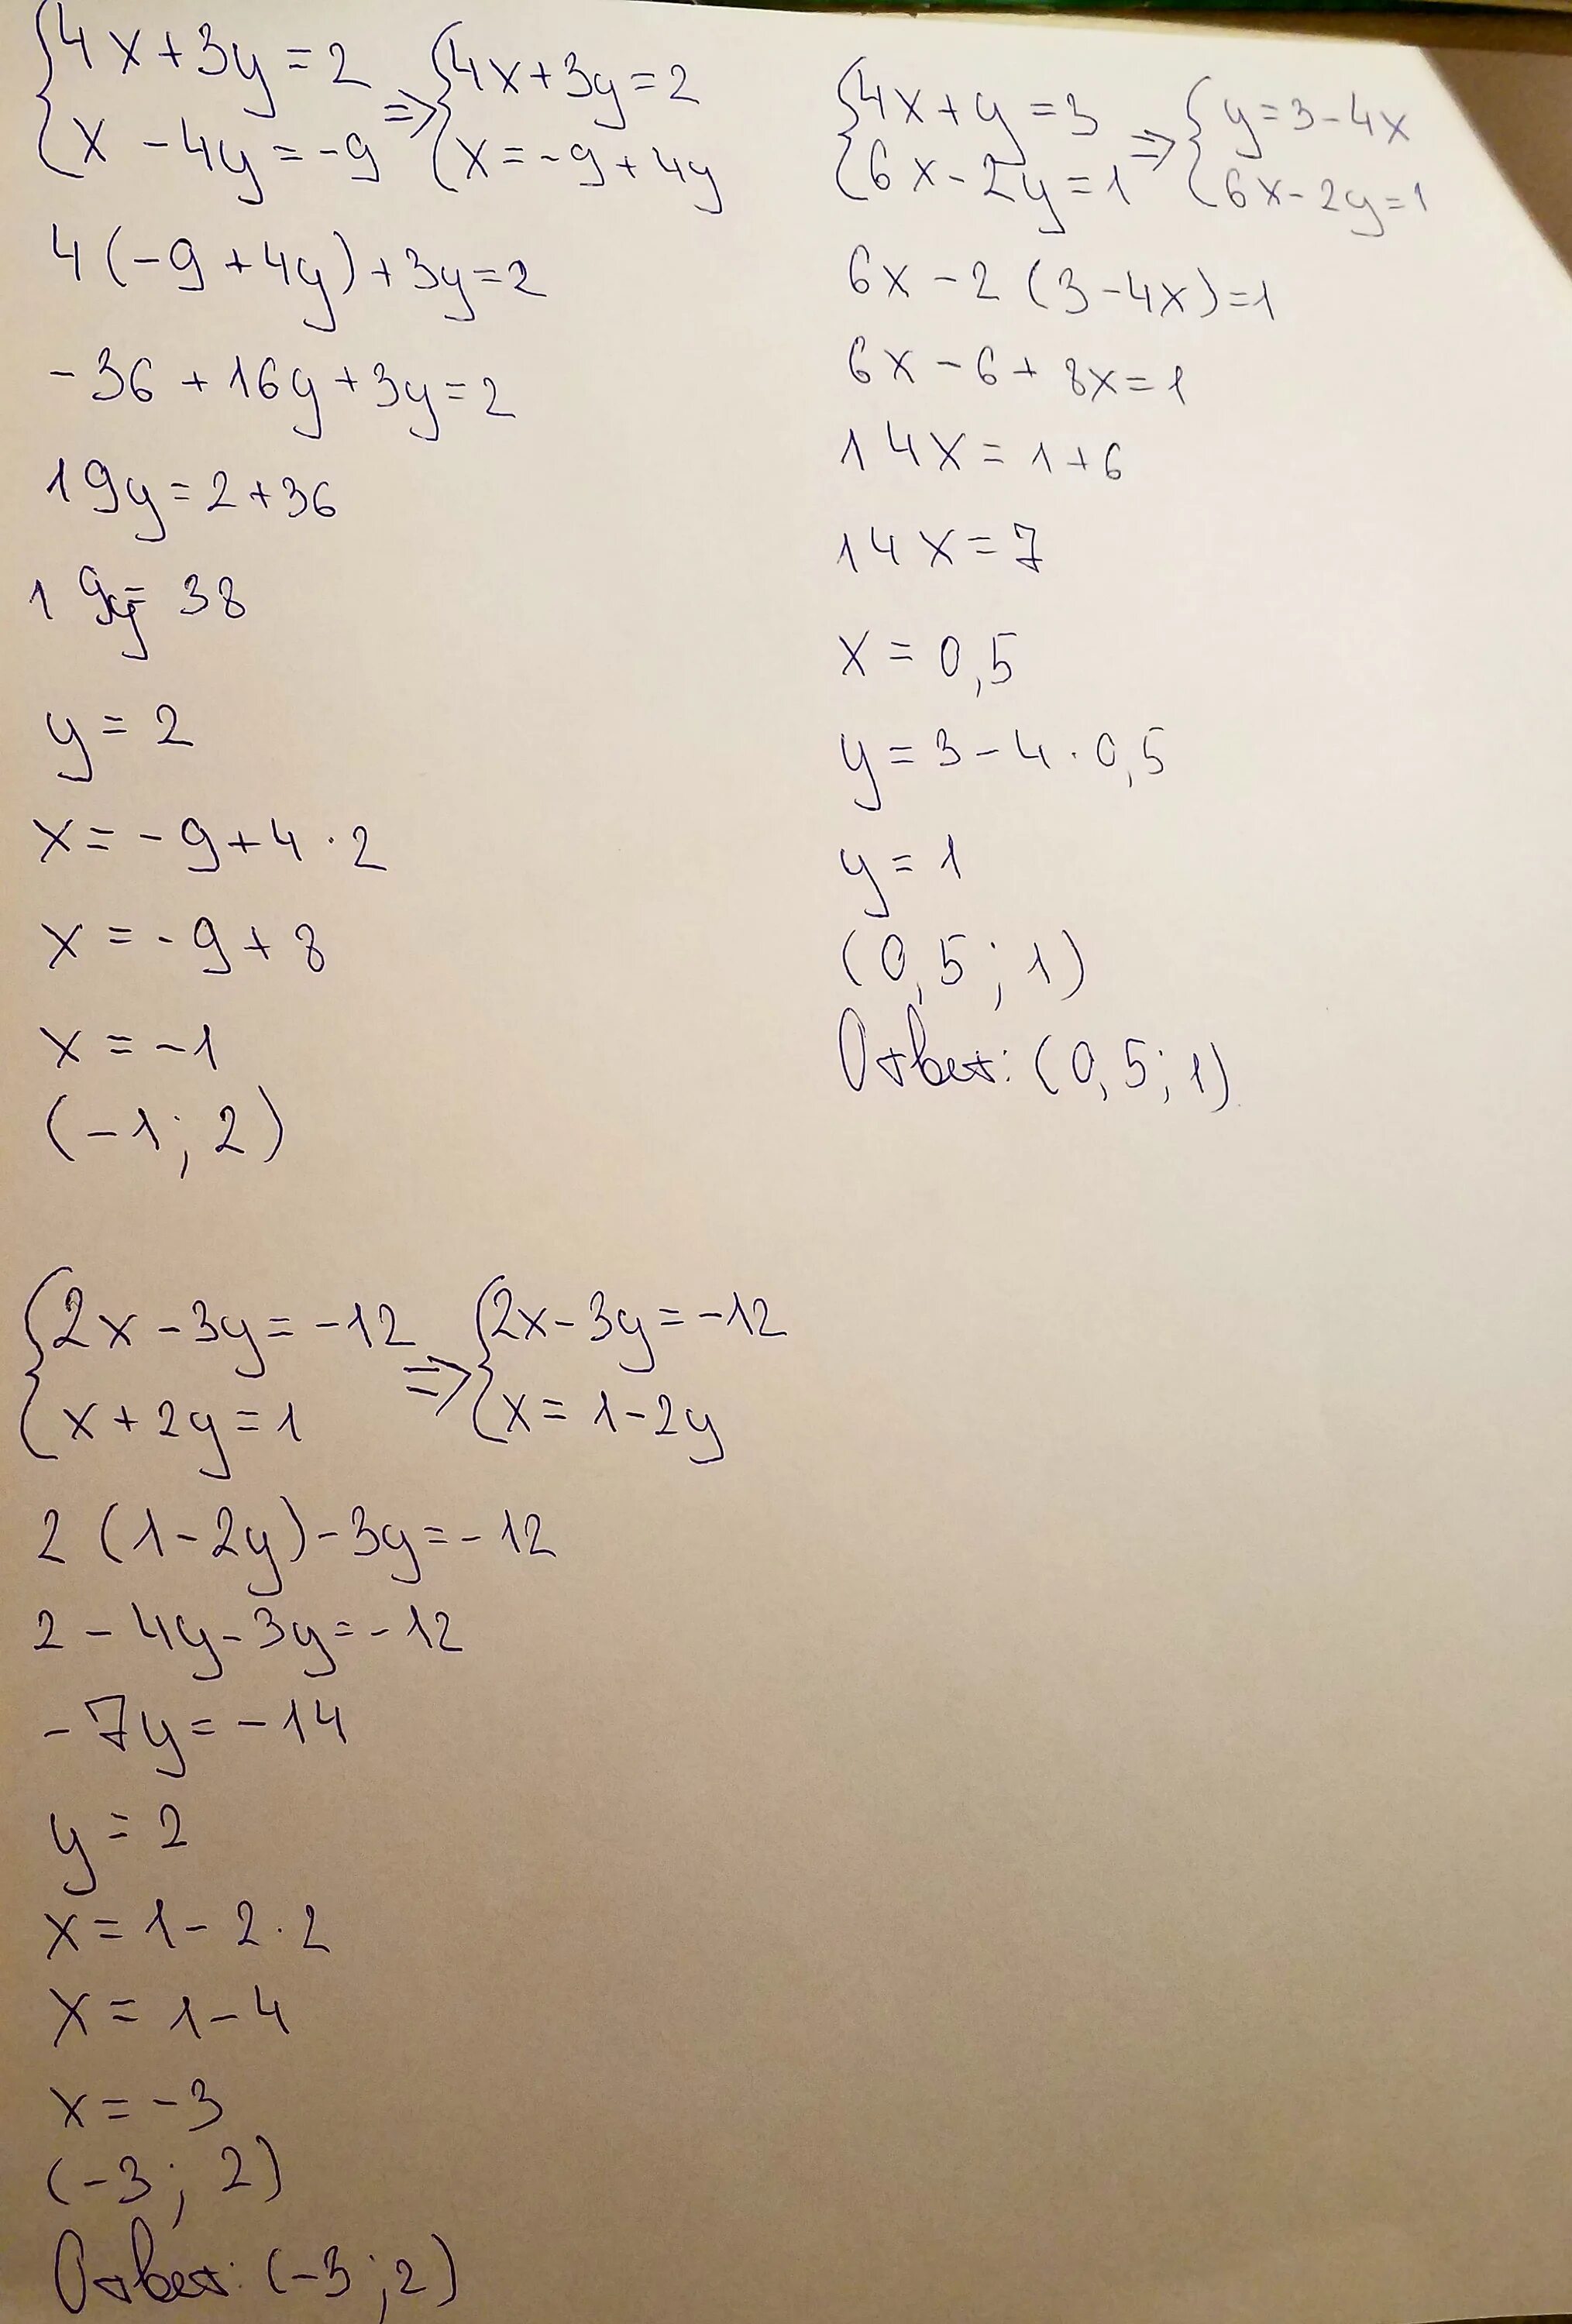 {4x+3y=2 => {4x+3y=2
{x-4y=-9 {x=-9+4y
4(-9+4y)+3y=2
-36+16y+3y=2
19y=2+36
19y=38
y=2
x=-9+4·2
x=-9+8
x=-1
(-1; 2)
{4x+y=3 => {y=3-4x
{6x-2y=1 {6x-2y=1
6x-2(3-4x)=1
6x-6+8x=1
14x=1+6
14x=7
x=0,5
y=3-4·0,5
y=1
(0,5; 1)
Ответ: (0,5; 1)
{2x-3y=-12 => {2x-3y=-12
{x+2y=1 {x=1-2y
2(1-2y)-3y=-12
2-4y-3y=-12
-7y=-14
y=2
x=1-2·2
x=1-4
x=-3
(-3; 2)
Ответ: (-3; 2)